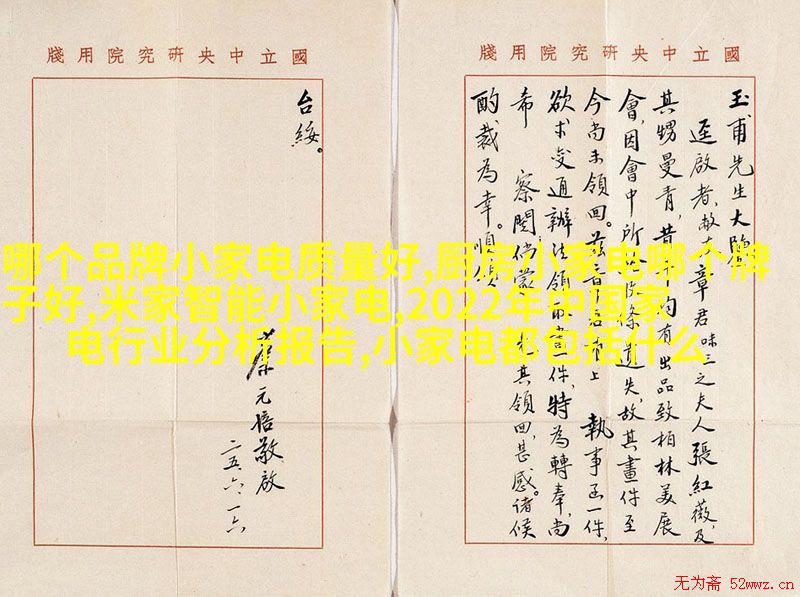 國立中央研究院用牋
玉甫先生大鑒
逕啟者敝友章君味三之夫人張紅薇及
其甥曼青昔年均有出品致柏林美展
會因會中所收條遺失故其畫件至
今尚未領回茲章君
執事函一件
欲求变通辦法領回
件特為轉奉尚
希
察閱倘蒙
其領回甚感諸候
酌裁為幸順頌
國立中央研究院用牋
台綏。
蔡元培敬啟
二五、六、一六
哪个品牌小家电质量好,厨房小家电哪个牌
子好,米家智能小家电,2022年中国家
电行业分析报告,小家电都包括什么
无为斋 52wwz.cn